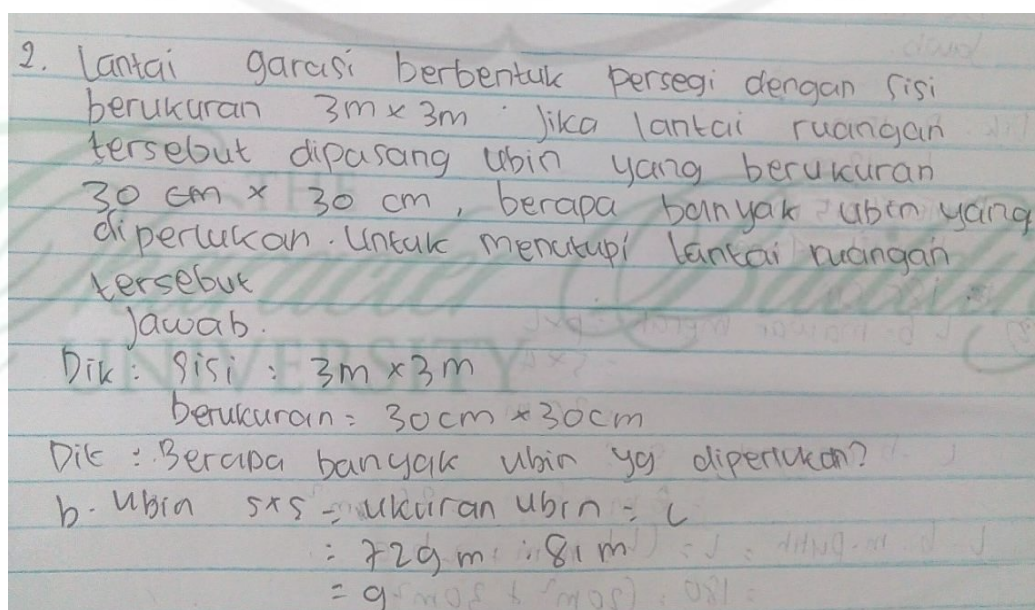 2. Lantai garasi berbentuk persegi dengan sisi
berukuran 3m × 3m . Jika lantai ruangan
tersebut dipasang ubin yang berukuran
30 cm × 30 cm, berapa banyak ubin yang
diperlukan. Untuk menutupi lantai ruangan
tersebut
Jawab.
Dik : Sisi : 3m × 3m
berukuran = 30cm × 30cm
Dit : Berapa banyak ubin yg diperlukan?
b. Ubin s×s = ukuran ubin = L
= 729 m : 81 m
= 9
THE
Character Building
UNIVERSITY